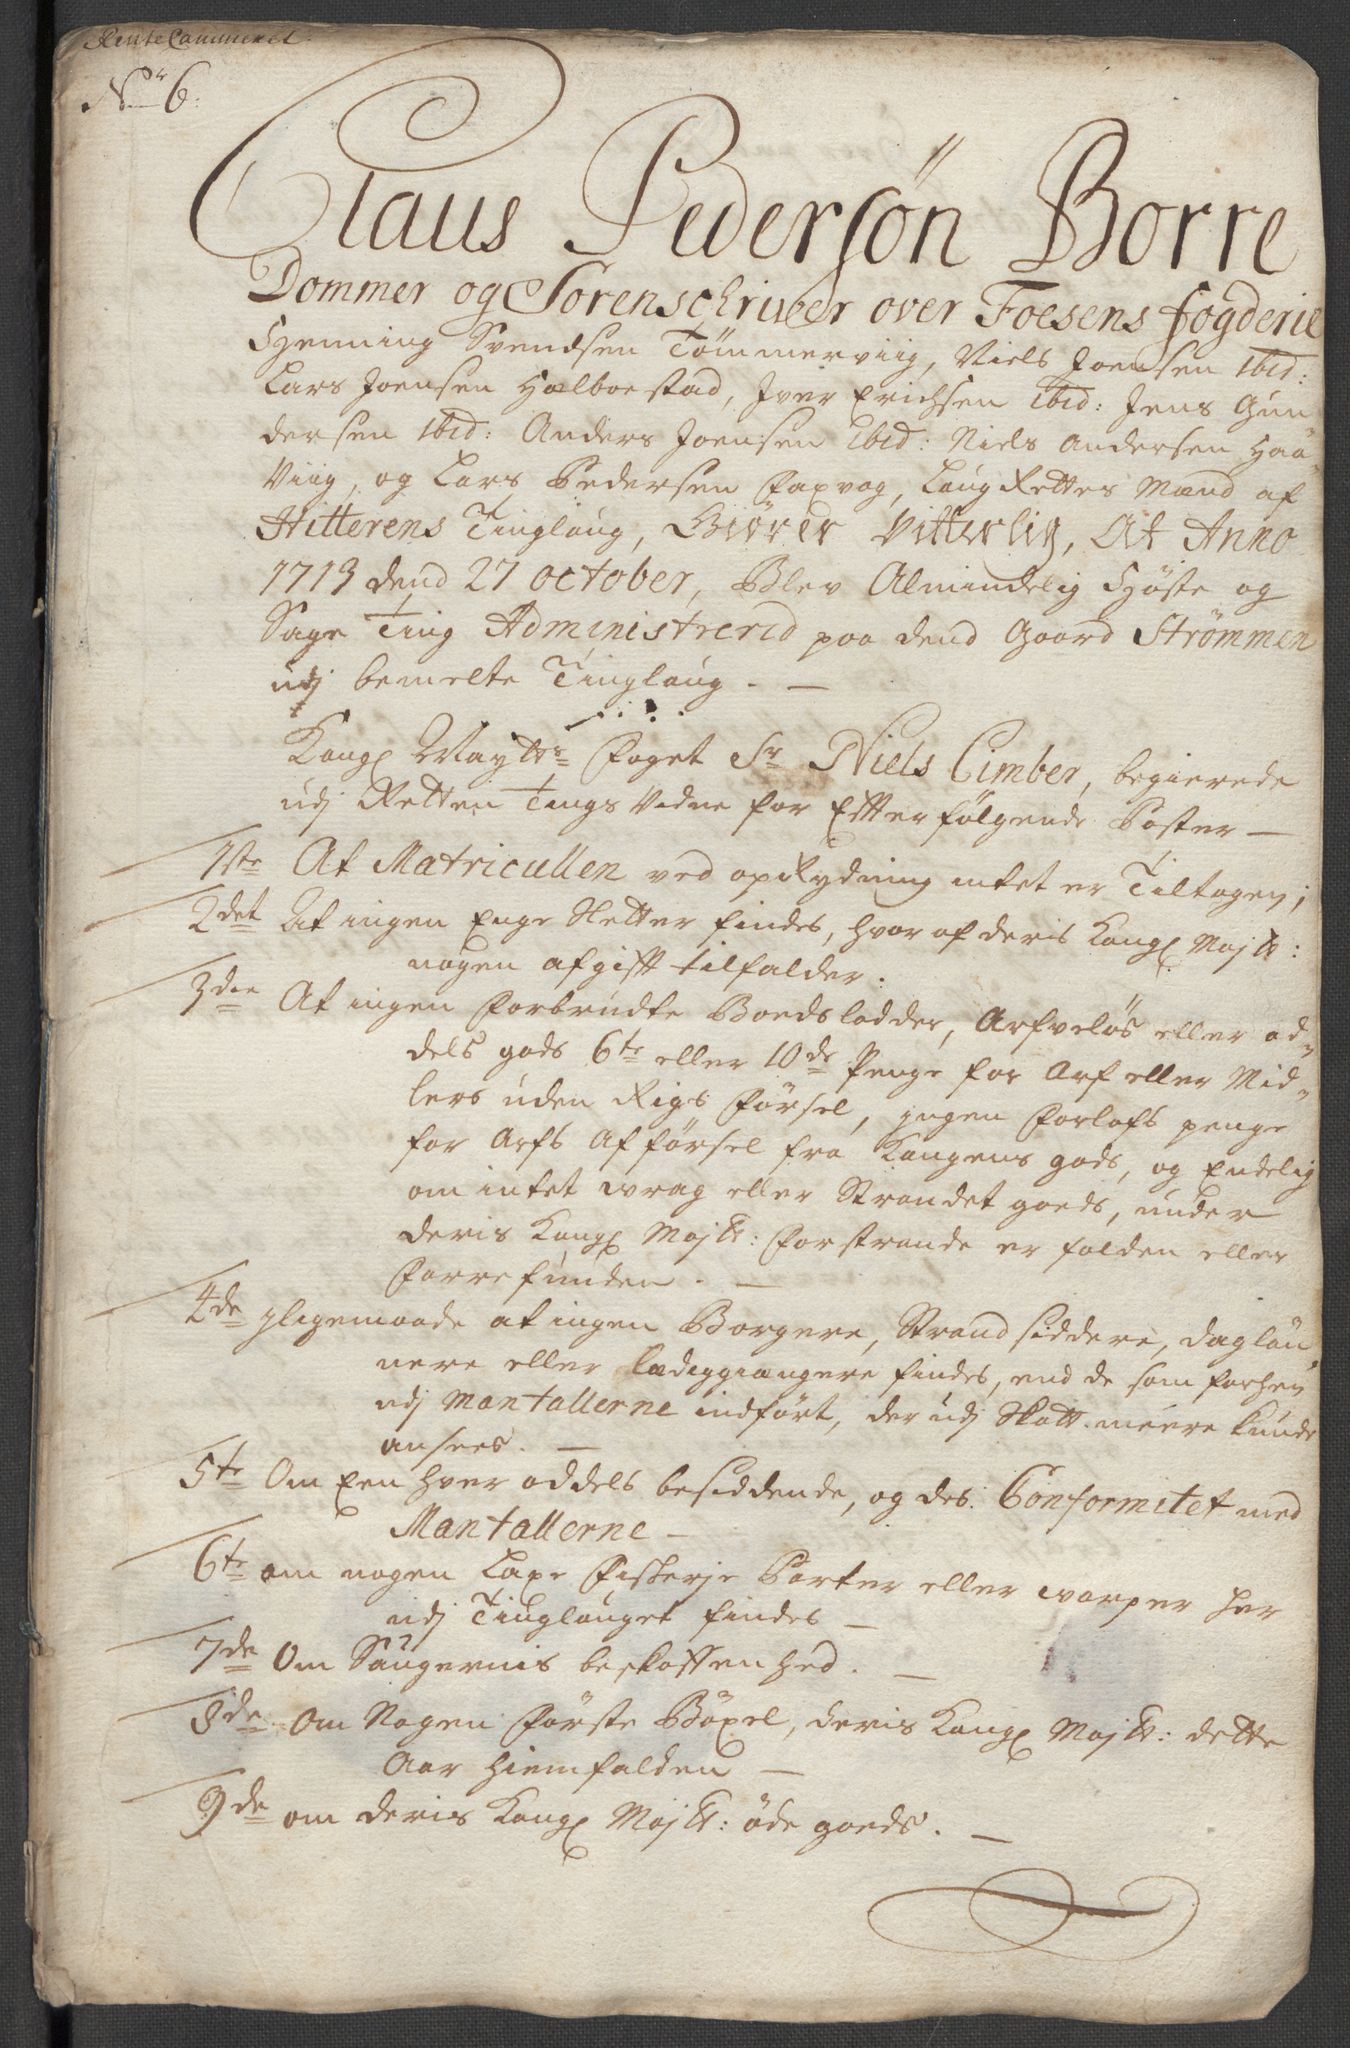 RenteCammeret.
No 6.
Claus Pedersön Borre
Dommer og Sorenschriver over Foesens fogderie
Henning Svendsen Tömmerviig, Niels Joensen ibid:
Lars Joensen Hælboestad, Iver Erichsen ibid: Jens Gun
dersen ibid: Anders Joensen ibid: Niels Andersen Haa
Viig, og Lars Pedersen Faxvog, LaugRettes Mænd af
Hitterens Tinglaug, Giörer Vitterlig, At Anno
1713 dend 27 october, Blev Almindelig Höste og
Sage Ting Administrerid paa dend Gaard Strömmen
udj bemelte Tinglaug. —
Kongl Mayts Foget Sr Niels Cimber, begierede
udj Retten Tings Vidne for Effterfölgende Poster —
1ste At Matricullen ved opRydning intet er Tiltagen;
2det At ingen Enge Sletter findes, hvor af deris Kongl Majtt:
nogen afgifft tilfalder.
3die At ingen Forbrudte Boeds lodder, Arfvelös eller od-
dels gods 6te eller 10de Penge for Arf eller Mid-
lers uden Rigs Försel, ingen Forlofs penge
for Arfs Afförsel fra Kongens gods, og Endelig
om intet wrag eller Strandet goeds, under
deris Kongl Majtt: Forstrande er falden eller
Forrefunden. —
4de jligemaade at ingen Borgere, Strandsiddere, daglön
nere eller lædiggiængere findes, end de som forhen
udj Mantallerne indfört, der udj Skatt meere kunde
ansees. —
5te Om Een hver oddels besiddende, og des Conformitet med
Mantallerne —
6te om nogen Laxe Fiskerje Parter eller warper her
udj Tinglauget findes —
7de Om Saugernis beskaffenhed. —
8de Om Nogen Förste Böxel, deris Kongl Majtt: dette
Aar hiemfalden —
9de om deris Kongl Majtt: öde goeds. —